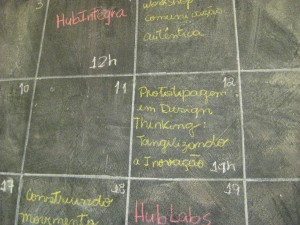 3
HubIntegra
12h
workshop
comunicação
autêntica
10
11
12
Prototipagem
em Design
Thinking:
Tangilizando
a Inovação
19h
17
Construindo
18
movimento
HubLabs
19